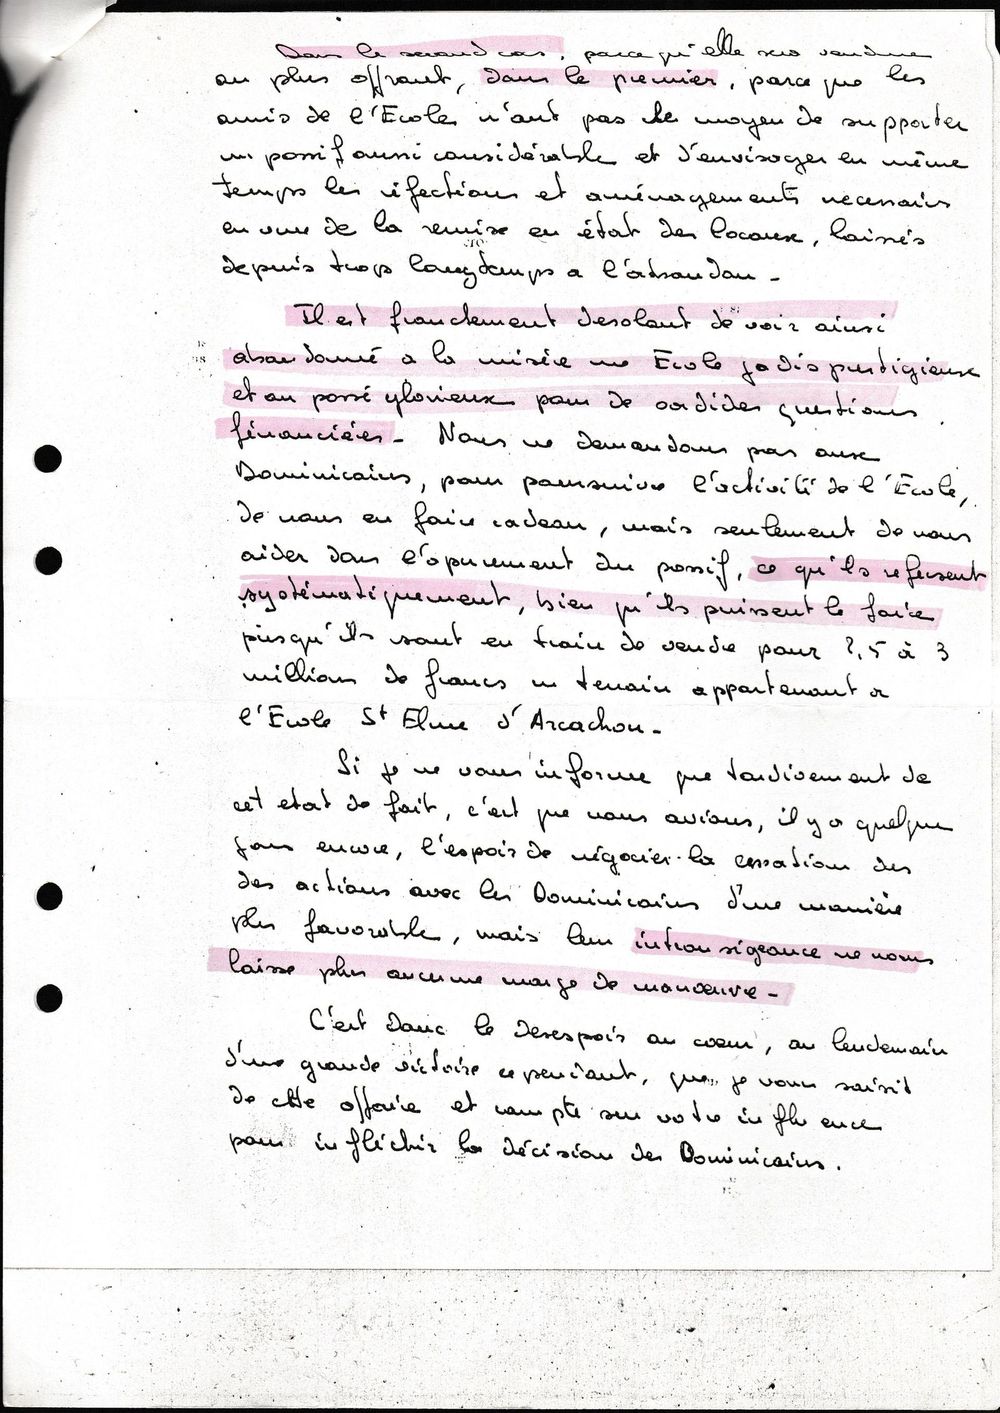 Dans le second cas, parce qu'elle sera vendue
au plus offrant, dans le premier, parce que les
amis de l'Ecole n'ont pas le moyen de supporter
un passif aussi considérable et d'envisager en même
temps les réfections et aménagements necessaires
en vue de la remise en état des locaux, laissés
depuis trop longtemps a l'abandon -
Il est franchement desolant de voir ainsi
abandonné a la misère une Ecole jadis prestigieuse
et au passé glorieux pour de sordides questions
financières - Nous ne demandons pas aux
Dominicains, pour poursuivre l'activité de l'Ecole,
de nous en faire cadeau, mais seulement de nous
aider dans l'apurement du passif, ce qu'ils refusent
systématiquement, bien qu'ils puissent le faire
puisqu'ils sont en train de vendre pour 2,5 à 3
millions de francs un terrain appartenant a
l'Ecole St Elme d'Arcachon -
Si je ne vous informe que tardivement de
cet etat de fait, c'est que nous avions, il y a quelque
jours encore, l'espoir de négocier la cessation des
des actions avec les Dominicains d'une manière
plus favorable, mais leur intransigeance ne nous
laisse plus aucune marge de manoeuvre -
C'est donc le desespoir au coeur, au lendemain
d'une grande victoire cependant, que je vous saisit
de cette affaire et compte sur votre influence
pour infléchir la décision des Dominicains.